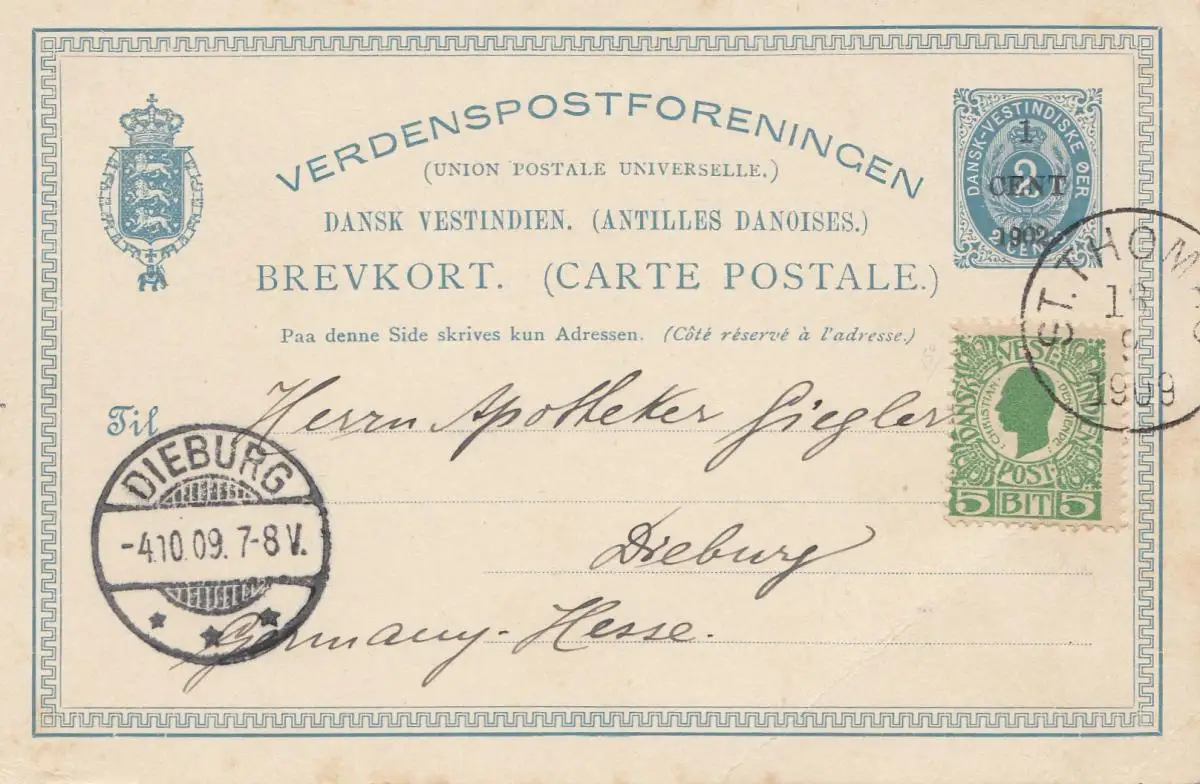 VERDENSPOSTFORENINGEN
(UNION POSTALE UNIVERSELLE.)
DANSK VESTINDIEN. (ANTILLES DANOISES.)
BREVKORT. (CARTE POSTALE.)
Paa denne Side skrives kun Adressen. (Côté réservé à l'adresse.)
DANSK-VESTINDISKE ØER
1
CENT
1902
3
ST. THOMAS
9
1909
DANSK VEST INDIEN
CHRISTIAN DEN NIENDE
POST
5 BIT 5
Til Herrn Apotheker Giegler
Dieburg
Germany-Hesse.
DIEBURG
-4.10.09. 7-8 V.